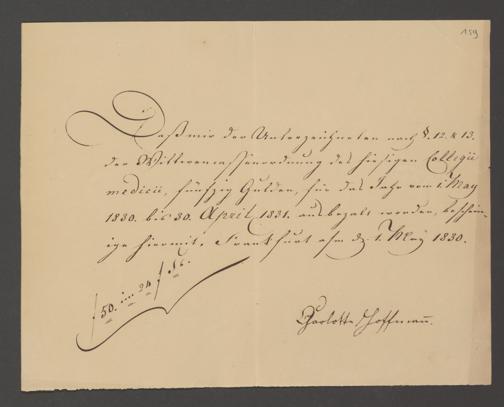 159
Daß mir der Unterzeichneten nach §. 12. & 13.
der Wittwencassenordnung des hiesigen Collegii
medicii, fünfzig Gulden, für das Jahr vom 1 May
1830. bis 30. April 1831. ausbezalt worden, beschein-
ige hiermit. Frankfurt a/m d. 1. May 1830.
f 50. im 24 f
Charlotte Hoffmann.